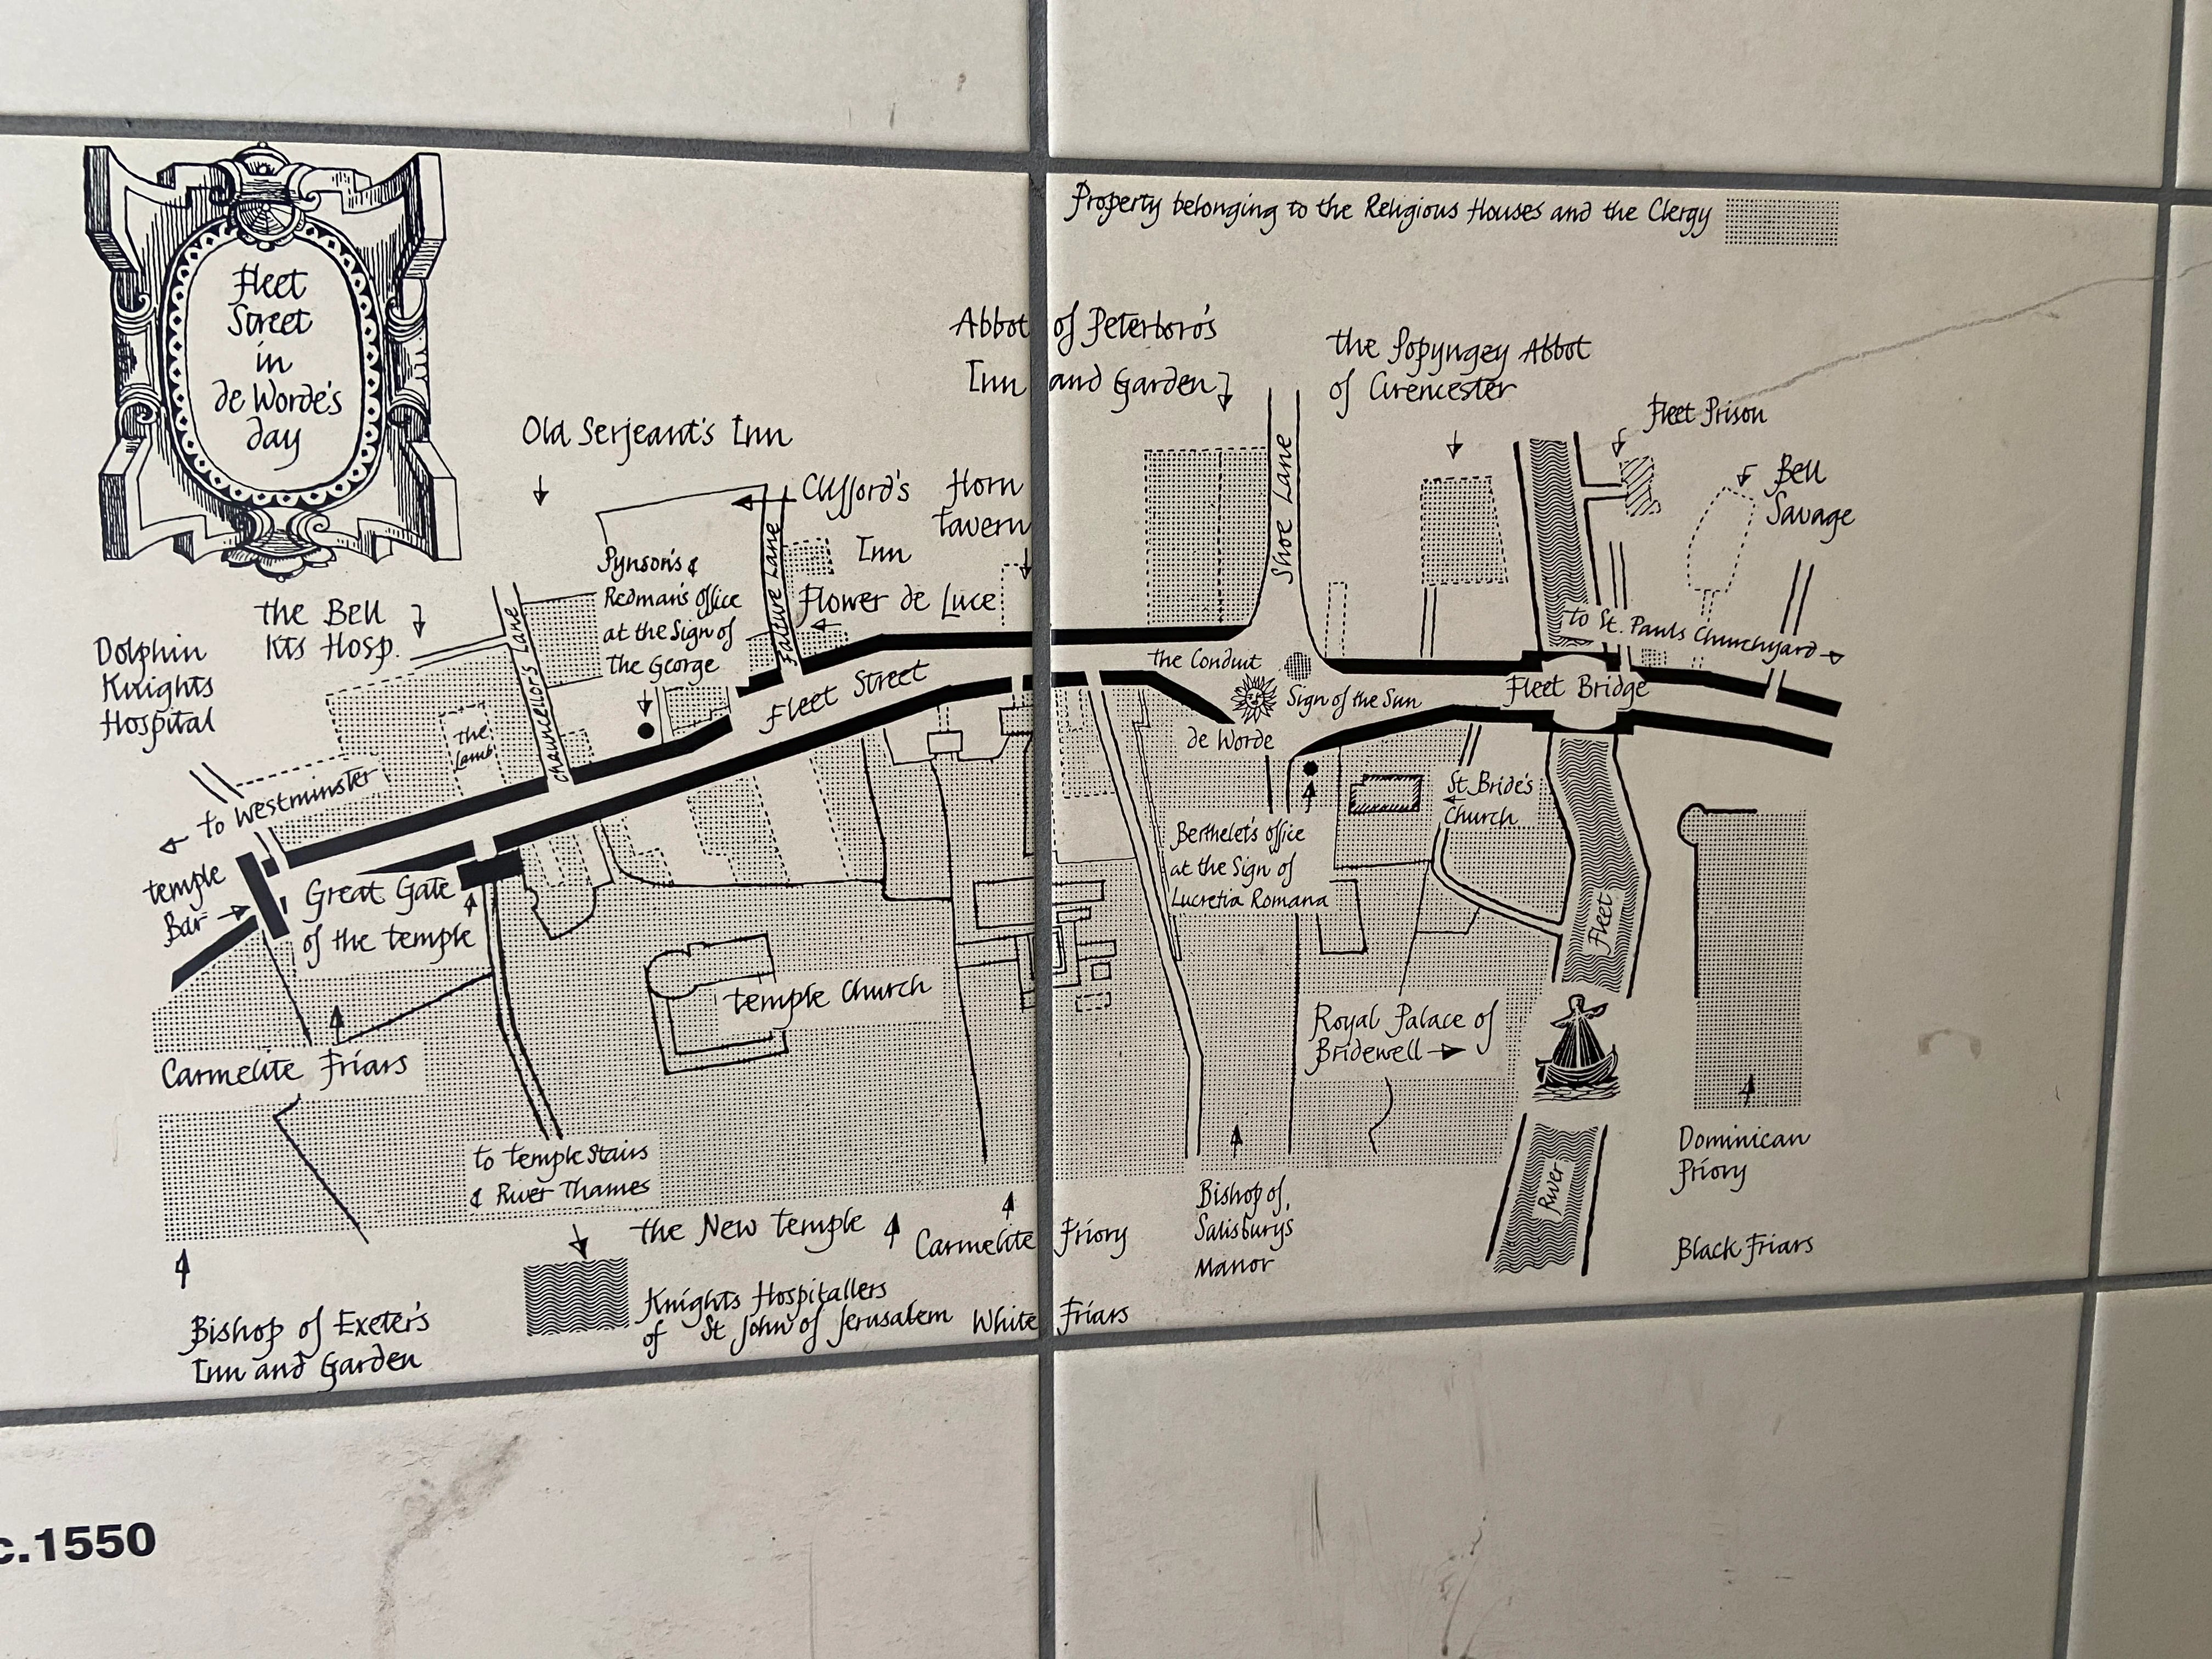 Fleet
Street
in
de Worde's
day
Property belonging to the Religious Houses and the Clergy
Abbot of Peterboro's
Inn and Garden
the Popyngey Abbot
of Cirencester
Fleet Prison
Bell
Savage
Old Serjeant's Inn
Clifford's
Inn
Horn
Tavern
Shoe Lane
Fauture Lane
Pynson's &
Redman's office
at the Sign of
the George
Flower de Luce
the Bell
Kts Hosp.
Dolphin
Knights
Hospital
Chauncellors Lane
the
Lamb
to St. Pauls Churchyard
The Conduit
Sign of the Sun
de Worde
Fleet Street
Fleet Bridge
to Westminster
temple
Bar
Great Gate
of the temple
St Bride's
Church
Berthelet's office
at the Sign of
Lucretia Romana
Fleet
temple Church
Royal Palace of
Bridewell
Carmelite Friars
to temple Stairs
& River Thames
River
Dominican
Priory
Black Friars
the New temple
Carmelite Priory
Bishop of
Salisbury's
Manor
Knights Hospitallers
of St John of Jerusalem
White Friars
Bishop of Exeter's
Inn and Garden
c.1550